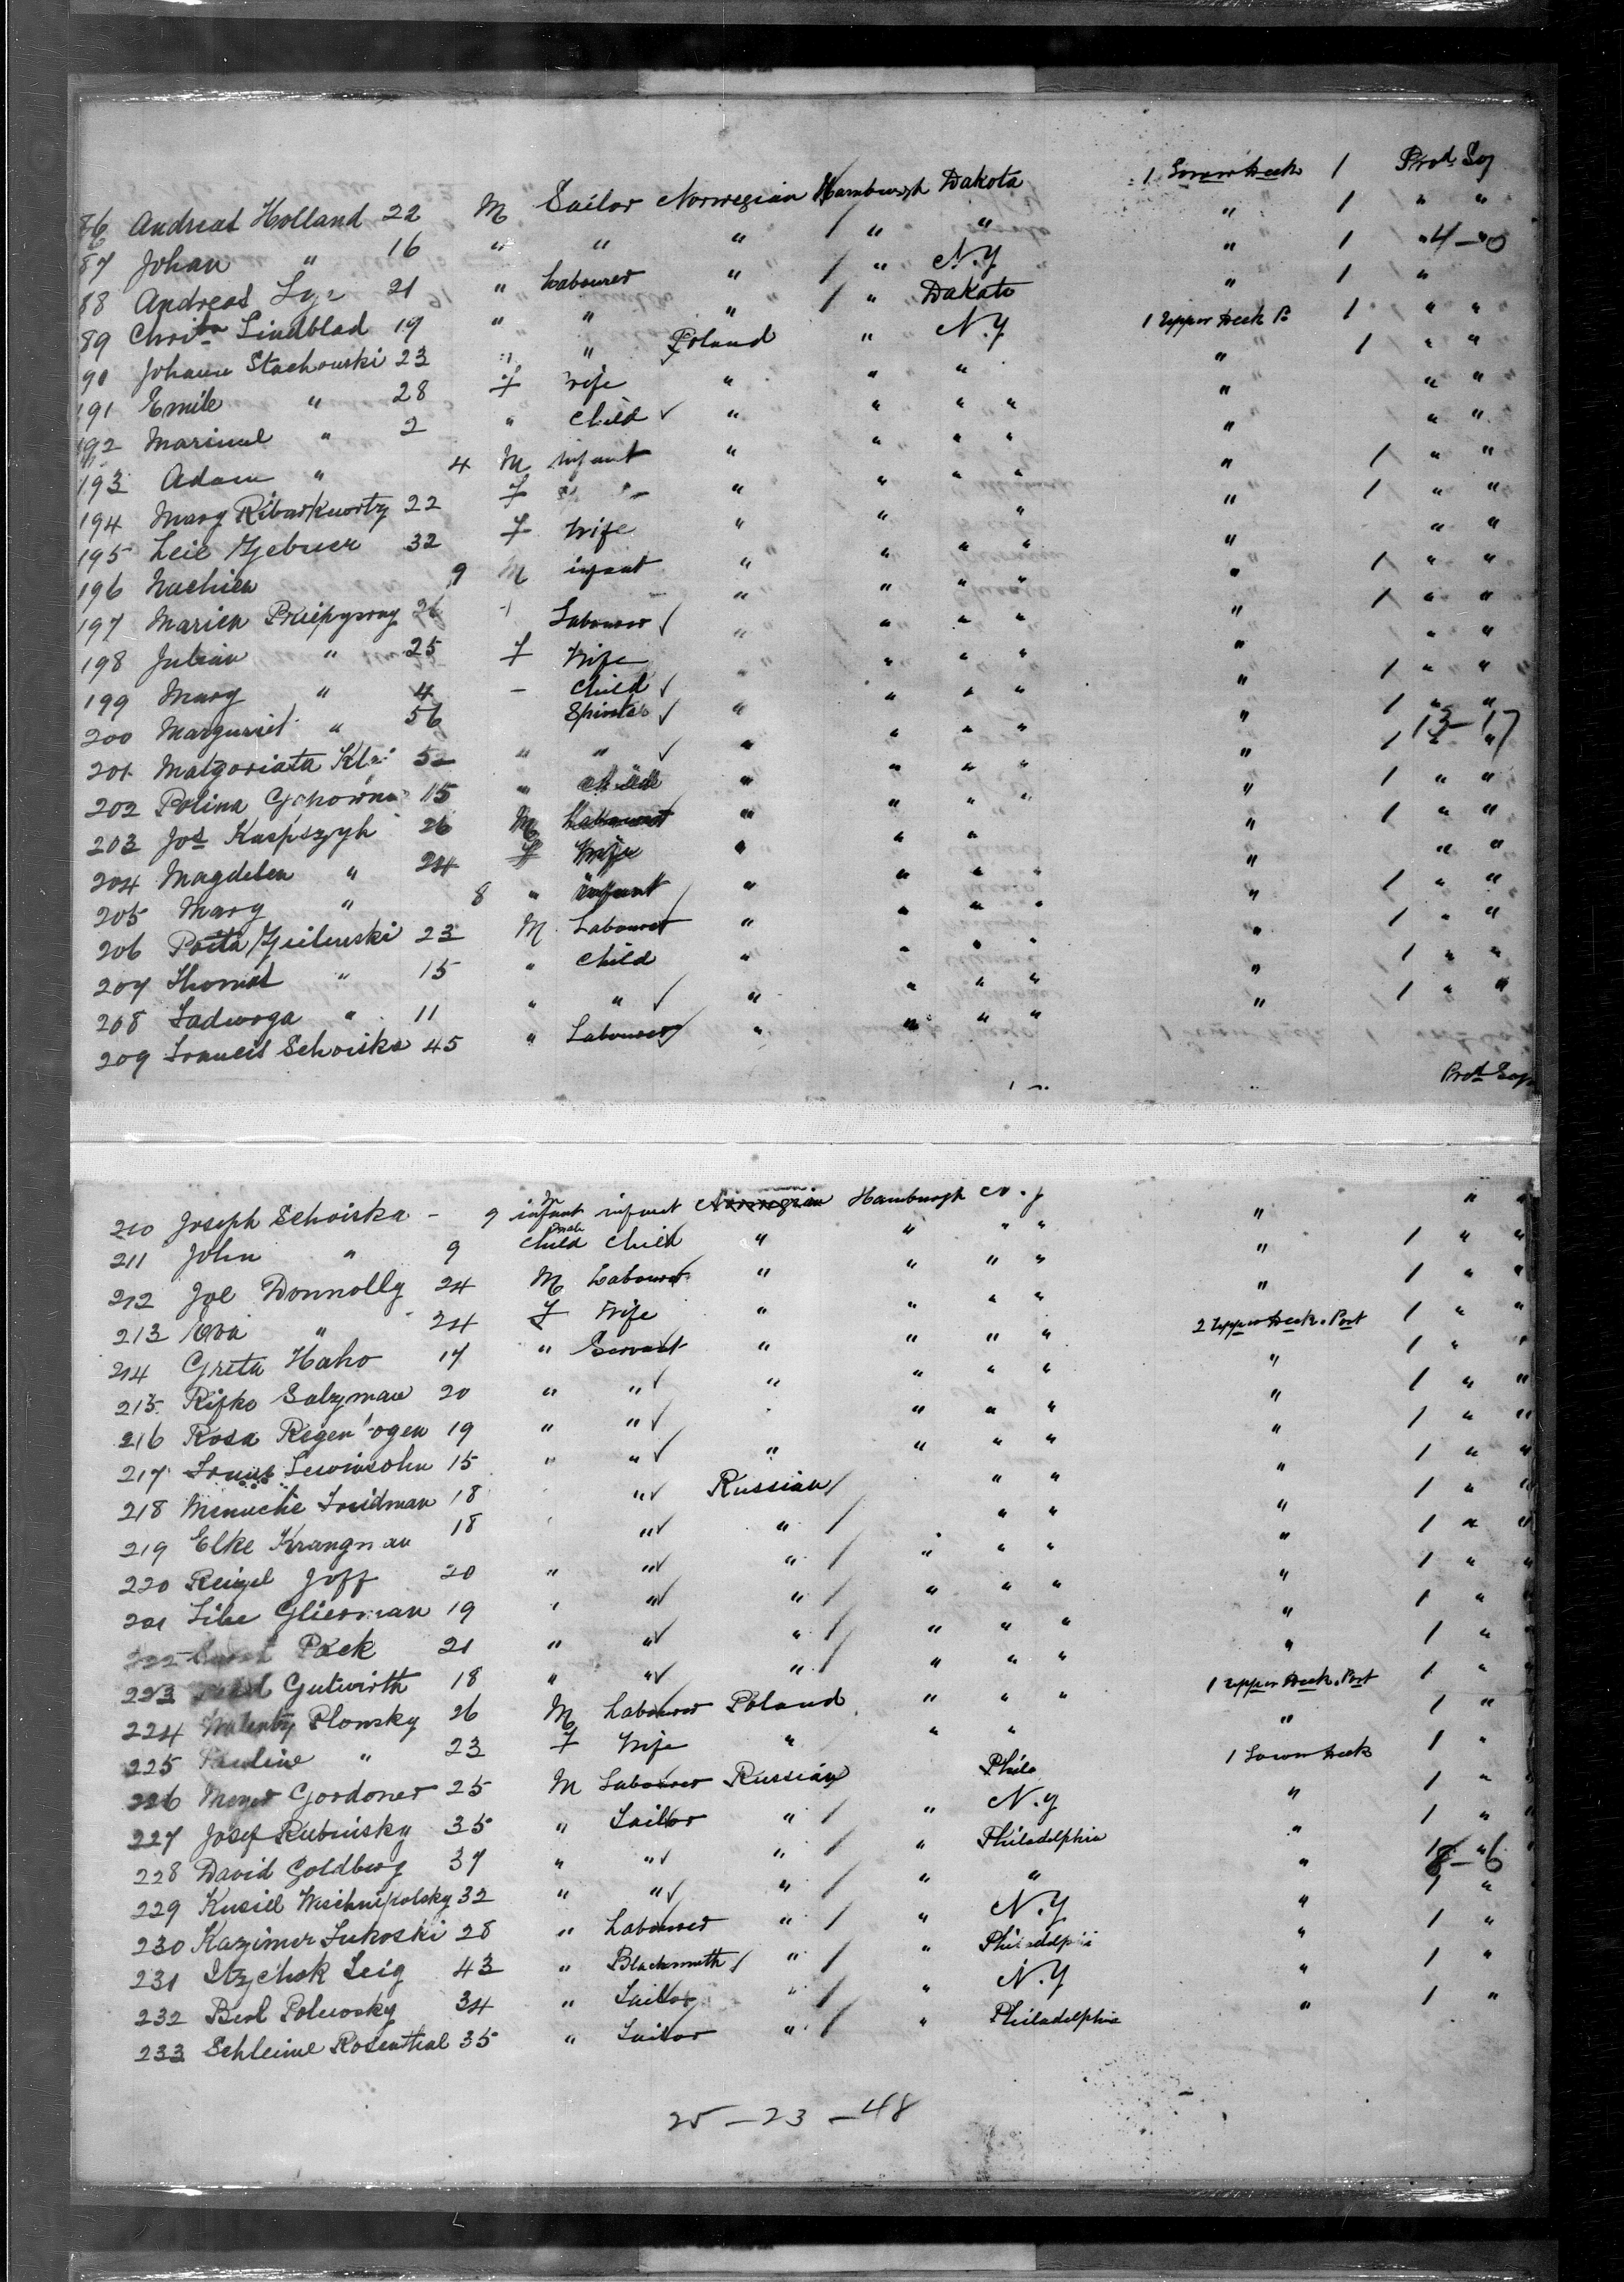 86 Andreas Holland 22 M Sailor Norwegian Hamburgh Dakota 1 Lower Deck 1 Prod Soj
87 Johan " 16 " " " / " " " 1 " "
88 Andreas 21 " Labourer " / " N.Y " 1 " 4-0
89 Lindblad 19 " " " / " Dakota " 1 "
90 Johann Stachowski 23 " " Poland " N.Y 1 Upper Deck P 1 " "
191 Emile " 28 f Wife " " " " 1 " "
192 " 2 " Child " " " " " " "
193 Adam " 4 M infant " " " " " " "
194 Mary 22 f " " " " " 1 " "
195 32 f Wife " " " " 1 " "
196 9 M infant " " " " " " "
197 26 Labourer " " " " " 1 " "
198 Julian " 25 f Wife " " " " " 1 " "
199 Mary " 4 - Child " " " " " " "
200 " 56 Spinster " " " " " 1 " "
201 Malgoriata 52 " " " " " " " 1 13-17
202 Polina 15 " Child " " " " " 1 " "
203 Jos Kaspszyh 26 M Labourer " " " " " 1 " "
204 Magdelen " 24 f Wife " " " " 1 " "
205 Mary " 8 " infant " " " " " " "
206 23 M Labourer " " " " " 1 " "
207 Thomas " 15 " Child " " " " " 1 " "
208 Jadwoga " 11 " " " " " " " 1 " "
209 Francis Schoiska 45 " Labourer " " " " " 1 " "
Prod Soj
210 Joseph Schoiska - 9 M infant infant Norwegian Hamburgh N.Y " " "
211 John " 9 Male Child Child " " " " " 1 " "
212 Joe Donnolly 24 M Labourer " " " " " 1 " "
213 Eva " 24 f Wife " " " " 2 Upper Deck. Port 1 " "
214 Greta Haho 17 " Servant " " " " " 1 "
215 Rifko Salzman 20 " " " " " " " 1 " "
216 Rosa 19 " " " " " " 1 " "
217 Lewinsohn 15 " " " " " " " 1 " "
218 Menuche Fridman 18 " Russian / " " " 1 " "
219 Elke 18 " " / " " " 1 " "
220 Reizel Joff 20 " " " / " " " " 1 "
221 Libe Glierman 19 " " " / " " " " 1 "
222 Pack 21 " " " / " " " " 1 "
223 Gutwirth 18 " " " / " " " 1 Upper Deck. Port 1 "
224 Plonsky 26 M Labourer Poland " " " " 1 "
225 Pauline " 23 f Wife " " " 1 Lower Deck 1 "
226 Meyer Gordoner 25 M Labourer Russian Phila " 1 "
227 Josef Rubinsky 35 " Tailor " / " N.Y " 1 "
228 David Goldberg 37 " " " / " Philadelphia " 8-6
229 Kusiel Wischnepolsky 32 " " " / " " " 1 "
230 Kazimer Lukoski 28 " Labourer " / " N.Y " 1 "
231 Itzchok Leig 43 " Blacksmith " / " Philadelphia " 1 "
232 Berl Polewsky 34 " Tailor " / " N.Y " 1 "
233 Schleime Rosenthal 35 " Tailor " / " Philadelphia
25 - 23 - 48